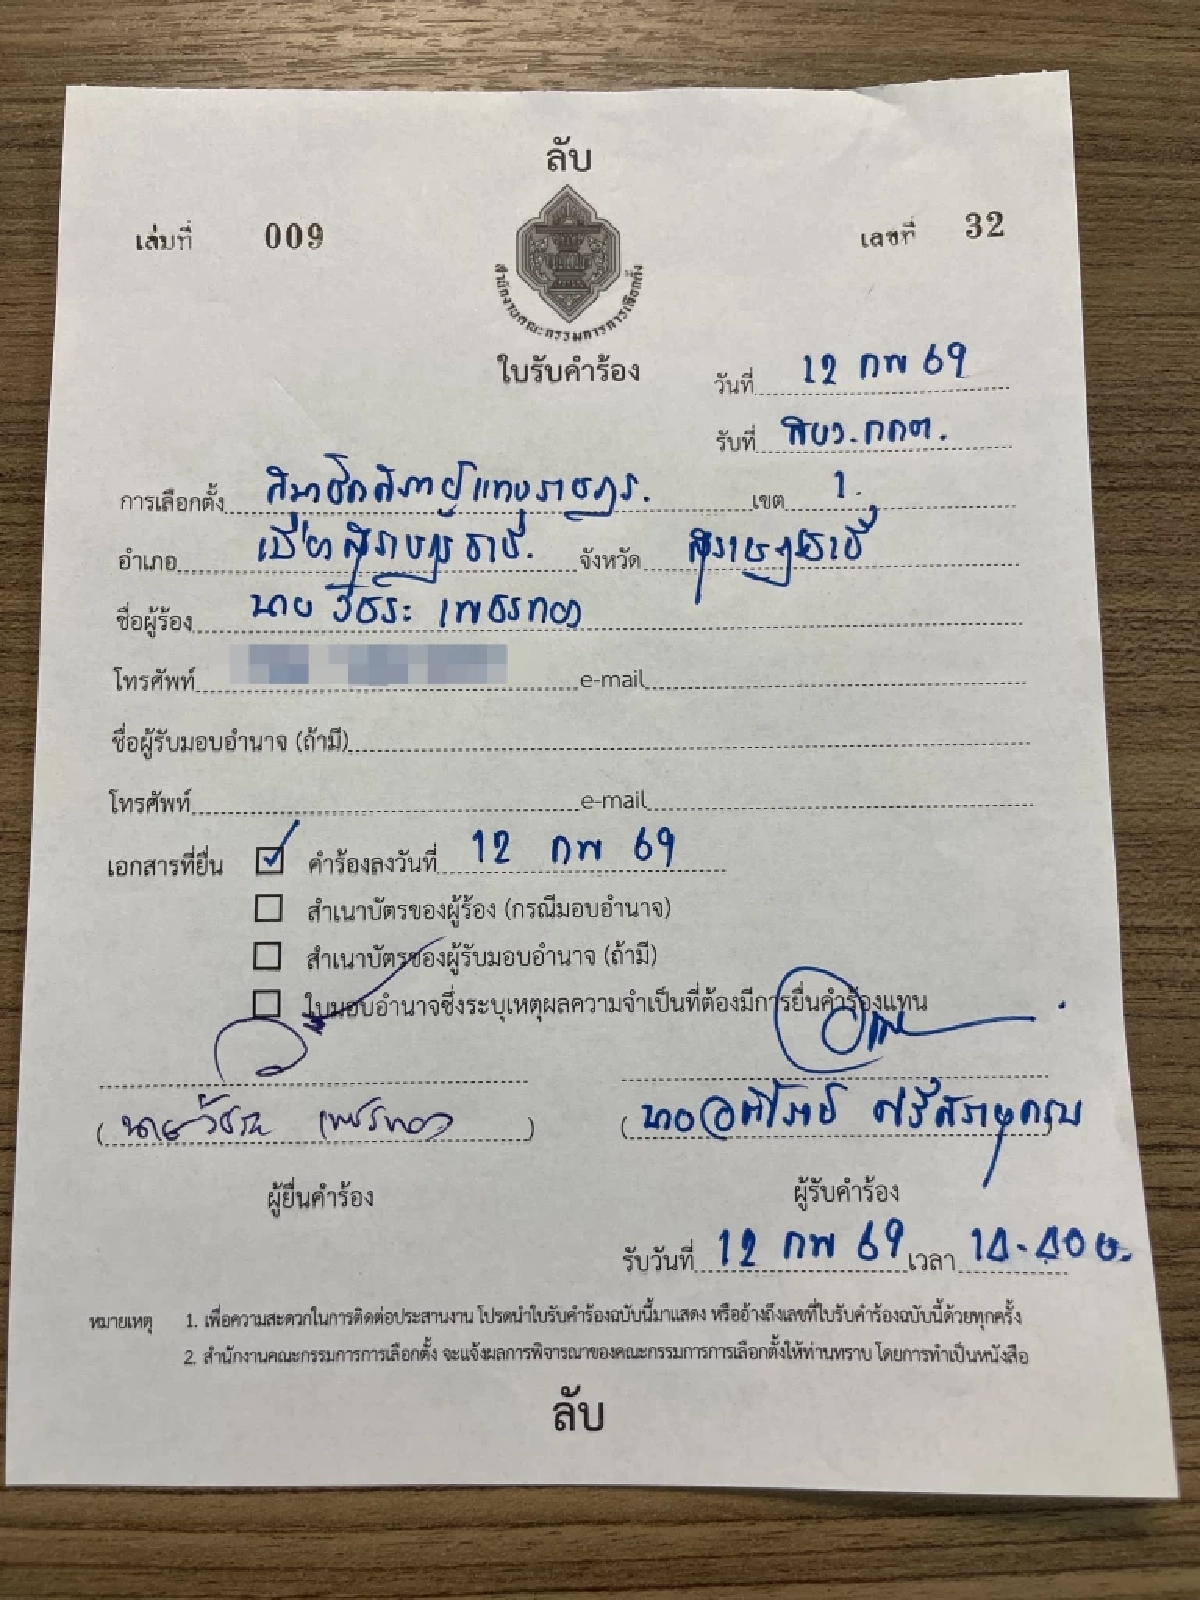 ลับ
เล่มที่ 009
เลขที่ 32
สำนักงานคณะกรรมการการเลือกตั้ง
ใบรับคำร้อง
วันที่ 12 กพ 69
รับที่ สบว. กกต.
การเลือกตั้ง สมาชิกสภาผู้แทนราษฎร. เขต 1.
อำเภอ เมืองสุราษฎร์ธานี. จังหวัด สุราษฎร์ธานี
ชื่อผู้ร้อง นาย วัชระ เพชรทอง
โทรศัพท์ e-mail
ชื่อผู้รับมอบอำนาจ (ถ้ามี)
โทรศัพท์ e-mail
เอกสารที่ยื่น ☑ คำร้องลงวันที่ 12 กพ 69
☐ สำเนาบัตรของผู้ร้อง (กรณีมอบอำนาจ)
☐ สำเนาบัตรของผู้รับมอบอำนาจ (ถ้ามี)
☐ ใบมอบอำนาจซึ่งระบุเหตุผลความจำเป็นที่ต้องมีการยื่นคำร้องแทน
(นายวัชระ เพชรทอง)
(นาย
ผู้ยื่นคำร้อง
ผู้รับคำร้อง
รับวันที่ 12 กพ 69 เวลา
หมายเหตุ 1. เพื่อความสะดวกในการติดต่อประสานงาน โปรดนำใบรับคำร้องฉบับนี้มาแสดง หรืออ้างถึงเลขที่ใบรับคำร้องฉบับนี้ด้วยทุกครั้ง
2. สำนักงานคณะกรรมการการเลือกตั้ง จะแจ้งผลการพิจารณาของคณะกรรมการการเลือกตั้งให้ท่านทราบ โดยการทำเป็นหนังสือ
ลับ